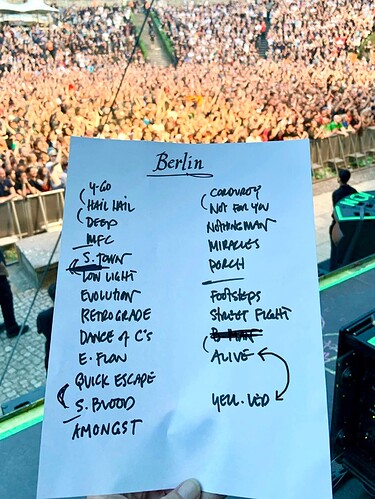 Berlin
Y-GO
HAIL HAIL
DEEP
MFC
S. TOWN
LOW LIGHT
EVOLUTION
RETROGRADE
DANCE of C's
E. FLOW
QUICK ESCAPE
S. BLOOD
AMONGST
CORDUROY
NOT FOR YOU
NOTHINGMAN
MIRACLES
PORCH
FOOTSTEPS
STREET FIGHT
ALIVE
YELL. LED